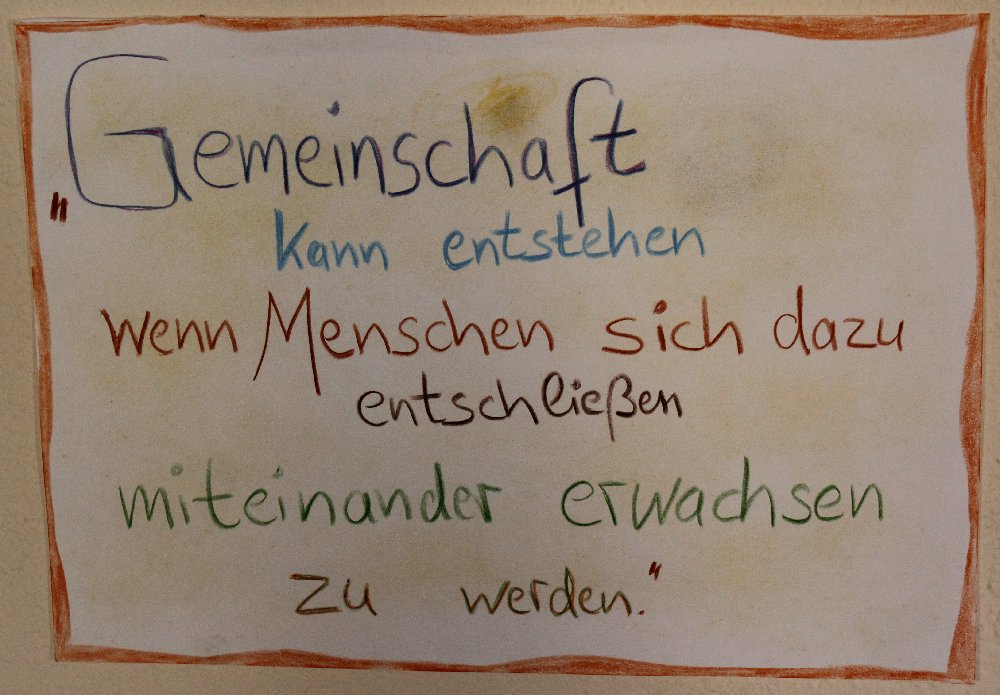 „Gemeinschaft
kann entstehen
wenn Menschen sich dazu
entschließen
miteinander erwachsen
zu werden."